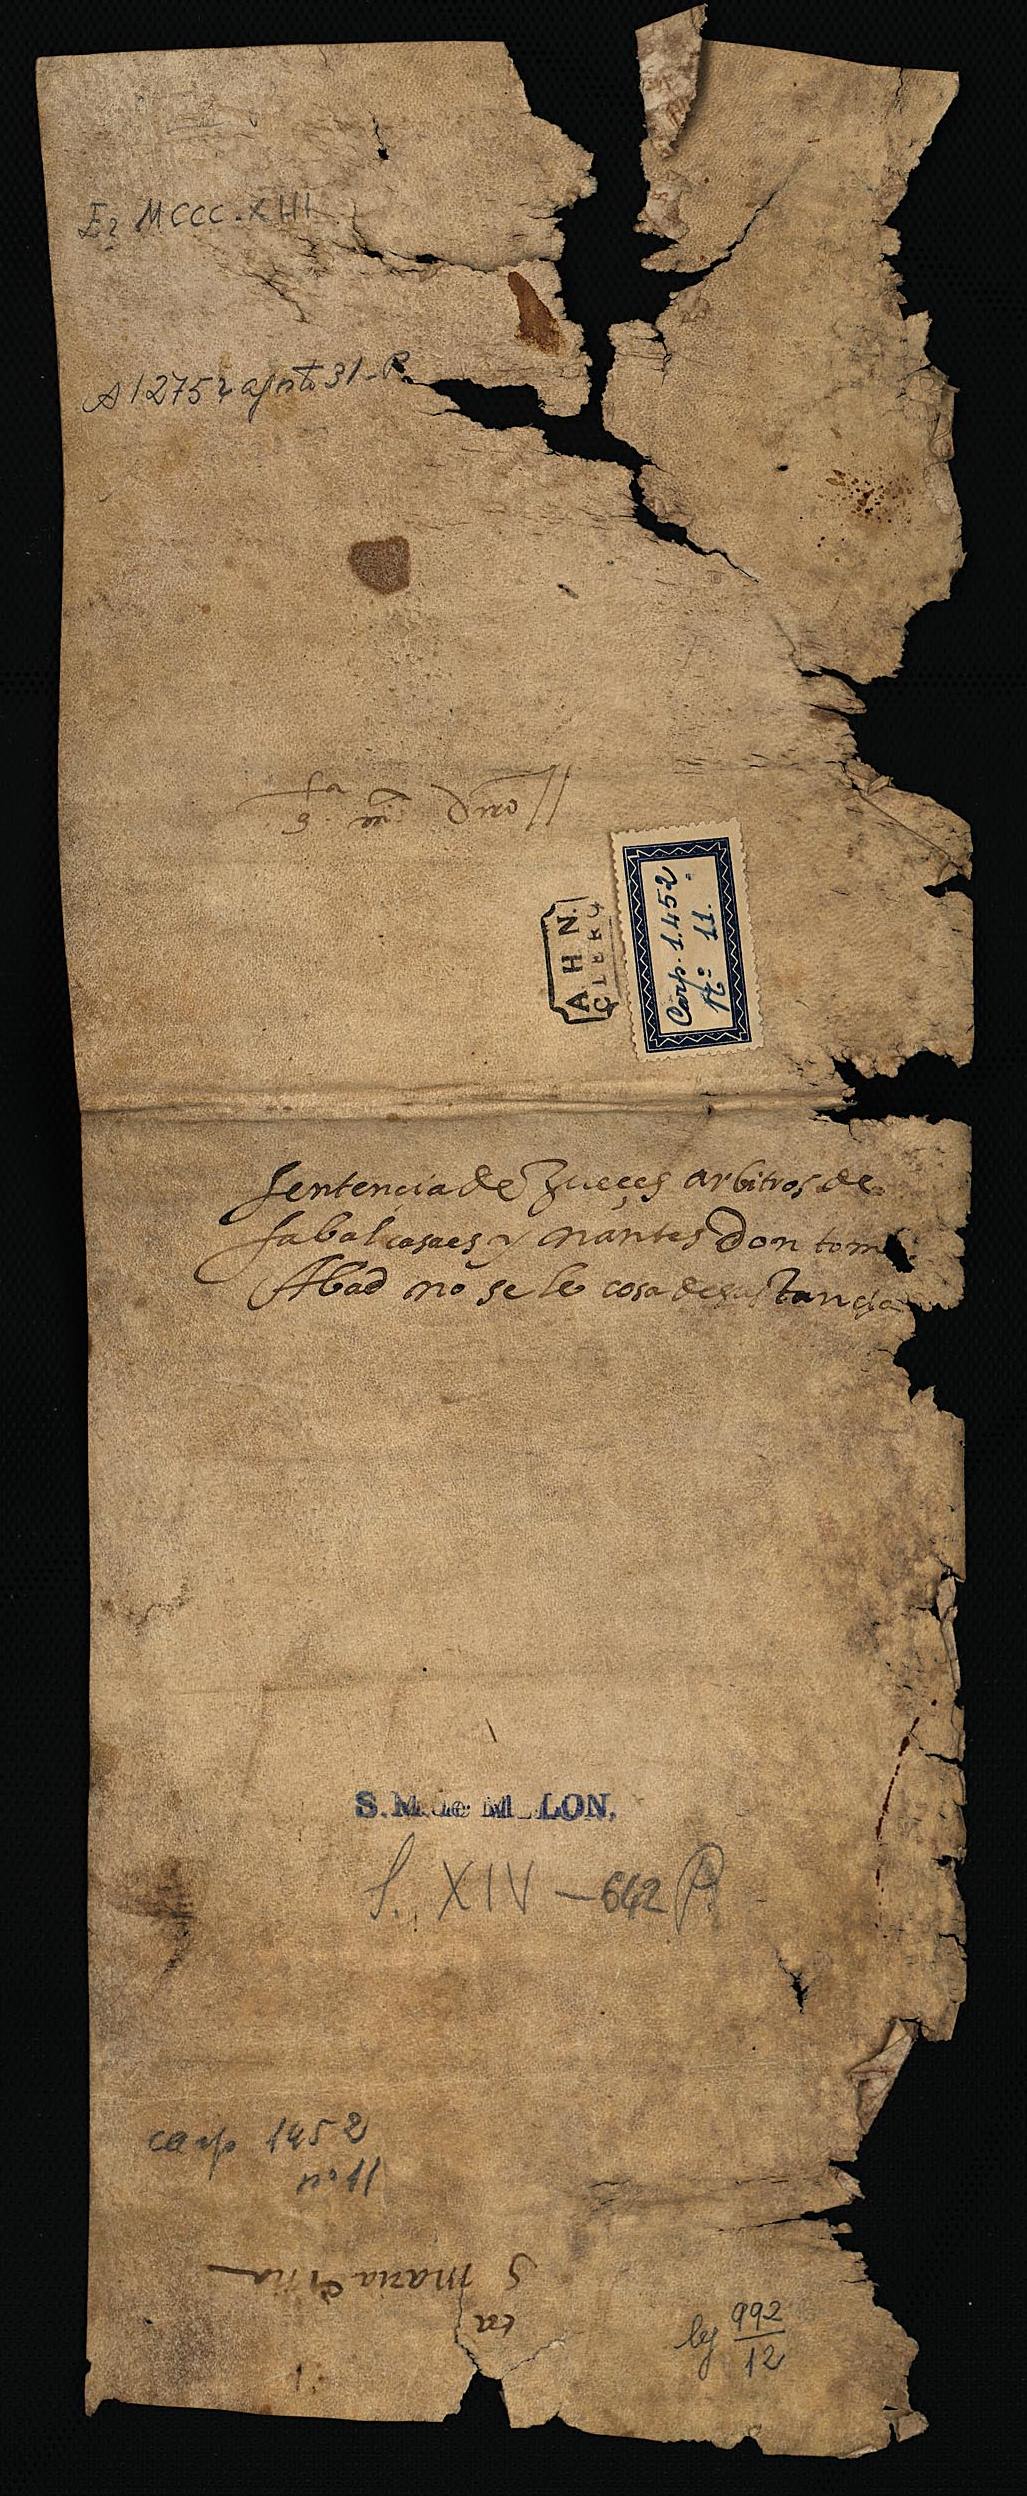 Eª MCCC-XIII
A 1275 agosto 31-P.
sª mª Dnro
A H N.
CLERO
Carp. 1.452
Nº 11.
Sentencia de Jueçes arbitros de
sabal casaes y nántes Don tom
Abad no se le cosa de sustançia
S. M. de M_LON.
S. XIV - 642 P.
carp 1452
nº 11
S maria
ra
leg 992
12